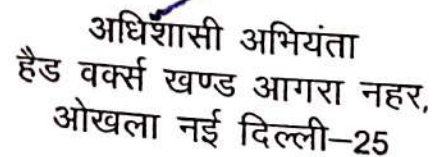 अधिशासी अभियंता
हैड वर्क्स खण्ड आगरा नहर,
ओखला नई दिल्ली–25